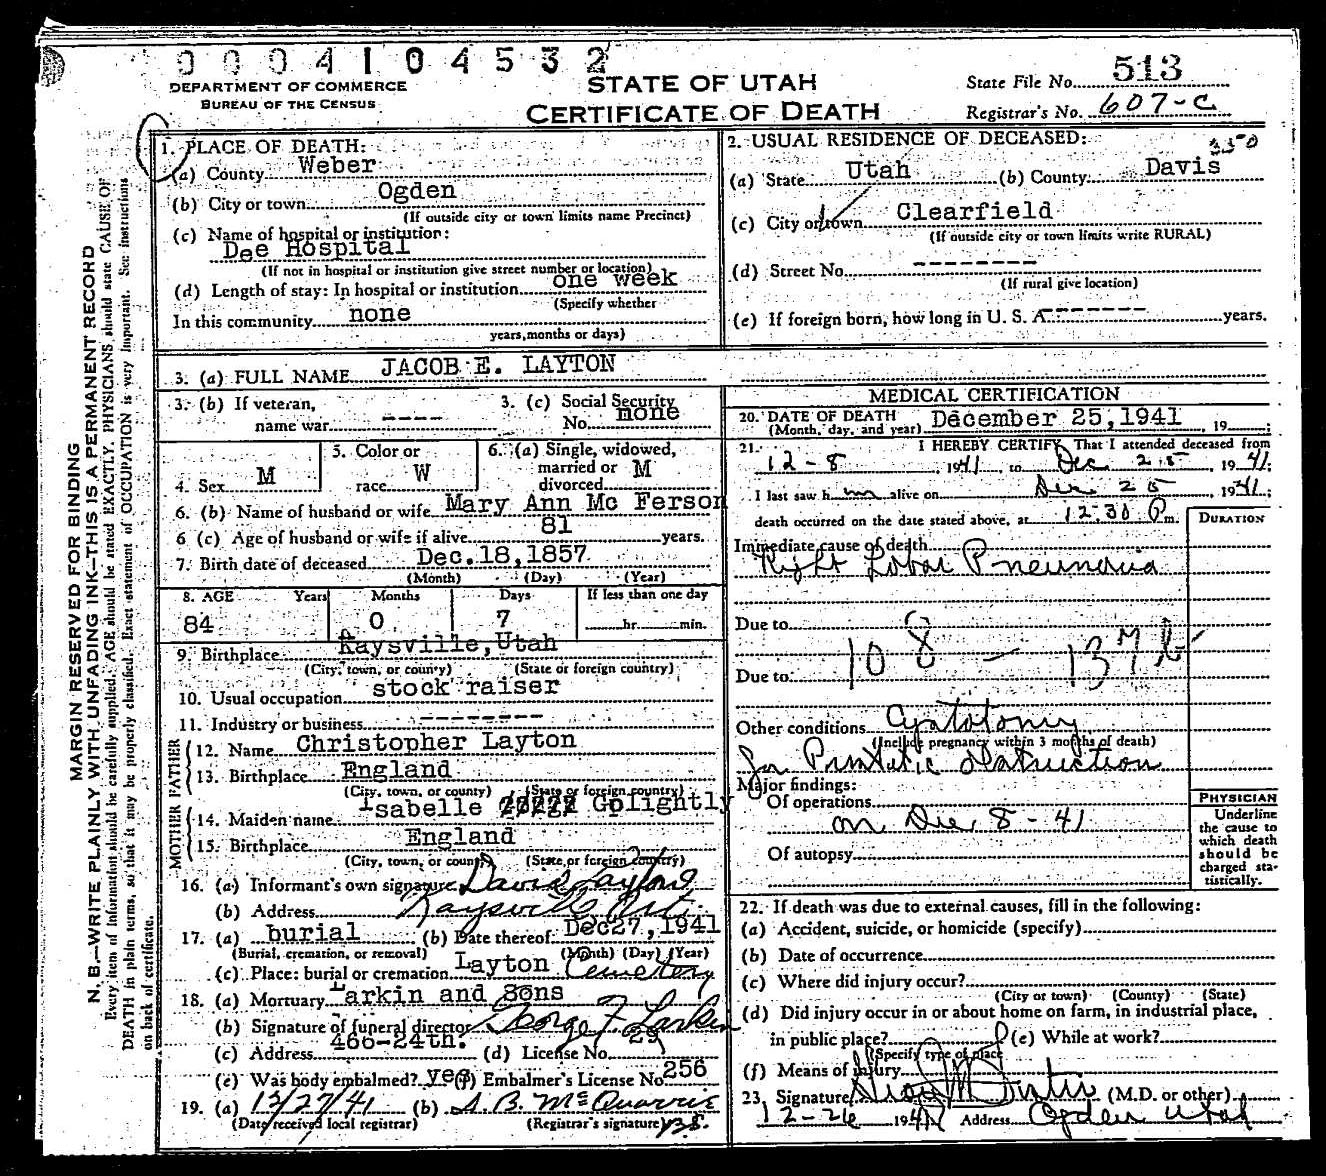 0004104532
DEPARTMENT OF COMMERCE
BUREAU OF THE CENSUS
STATE OF UTAH
CERTIFICATE OF DEATH
State File No. 513
Registrar's No. 607-C
MARGIN RESERVED FOR BINDING
N. B.—WRITE PLAINLY WITH UNFADING INK—THIS IS A PERMANENT RECORD
Every item of information should be carefully supplied. AGE should be stated EXACTLY. PHYSICIANS should state CAUSE OF
DEATH in plain terms, so that it may be properly classified. Exact statement of OCCUPATION is very important. See instructions
on back of certificate.
1. PLACE OF DEATH:
(a) County Weber
(b) City or town Ogden
(If outside city or town limits name Precinct)
(c) Name of hospital or institution:
Dee Hospital
(If not in hospital or institution give street number or location)
(d) Length of stay: In hospital or institution one week
(Specify whether
In this community none
years, months or days)
2. USUAL RESIDENCE OF DECEASED:
3350
(a) State Utah (b) County Davis
(c) City or town Clearfield
(If outside city or town limits write RURAL)
(d) Street No. --------
(If rural give location)
(e) If foreign born, how long in U. S. A. ------- years.
3. (a) FULL NAME JACOB E. LAYTON
3. (b) If veteran,
name war ----
3. (c) Social Security
No. none
4. Sex M
5. Color or
race W
6. (a) Single, widowed,
married or M
divorced
6. (b) Name of husband or wife Mary Ann Mc Ferson
6 (c) Age of husband or wife if alive 81 years.
7. Birth date of deceased Dec.18,1857
(Month) (Day) (Year)
8. AGE Years Months Days If less than one day
84 0 7 hr. min.
9. Birthplace Kaysville,Utah
(City, town, or county) (State or foreign country)
10. Usual occupation stock raiser
11. Industry or business --------
FATHER
12. Name Christopher Layton
13. Birthplace England
(City, town, or county) (State or foreign country)
MOTHER
14. Maiden name Isabelle Golightly
15. Birthplace England
(City, town, or county) (State or foreign country)
16. (a) Informant's own signature David Layton
(b) Address Kaysville Ut.
17. (a) burial (b) Date thereof Dec27,1941
(Burial, cremation, or removal) (Month) (Day) (Year)
(c) Place: burial or cremation Layton Cemetery
18. (a) Mortuary Larkin and Sons
(b) Signature of funeral director George F. Larkin
(c) Address 466-24th. (d) License No. 29
(e) Was body embalmed? yes (f) Embalmer's License No. 256
19. (a) 12/27/41 (b) A. B. McQuarrie
(Date received local registrar) (Registrar's signature)
MEDICAL CERTIFICATION
20. DATE OF DEATH December 25,1941 19
(Month, day, and year)
21. I HEREBY CERTIFY, That I attended deceased from
12-8, 1941, to Dec 25, 1941;
I last saw him alive on Dec 25, 1941;
death occurred on the date stated above, at 12.30 P m.
DURATION
Immediate cause of death
Right Lobar Pneumonia
Due to
108 - 137
Due to
Other conditions Cystotomy
(Include pregnancy within 3 months of death)
for Prostatic obstruction
Major findings:
Of operations
on Dec 8-41
Of autopsy
PHYSICIAN
Underline
the cause to
which death
should be
charged sta-
tistically.
22. If death was due to external causes, fill in the following:
(a) Accident, suicide, or homicide (specify)
(b) Date of occurrence
(c) Where did injury occur?
(City or town) (County) (State)
(d) Did injury occur in or about home on farm, in industrial place,
in public place? (e) While at work?
(Specify type of place
(f) Means of injury
23. Signature (M.D. or other)
12-26 1941 Address Ogden Utah